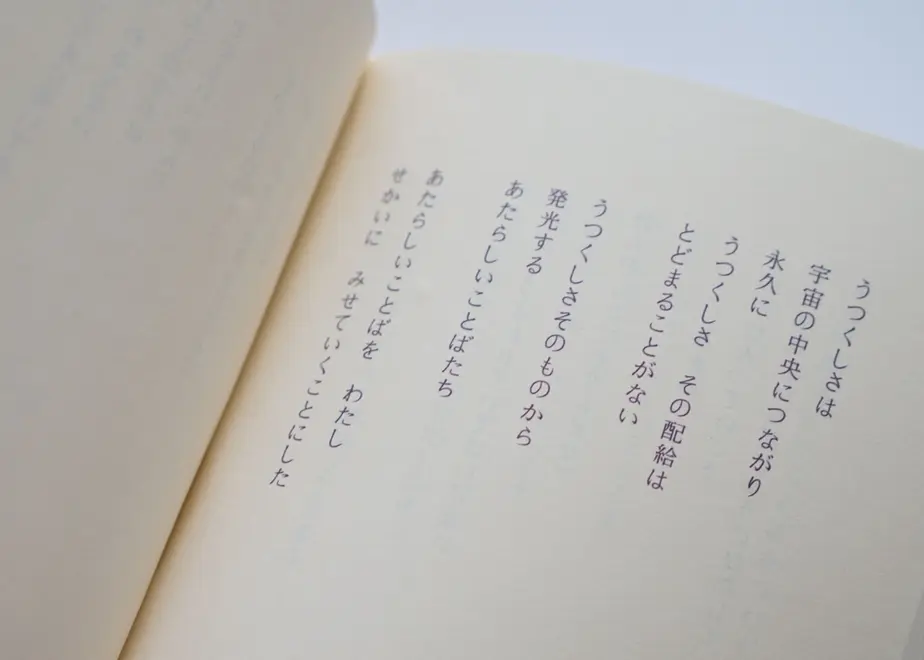 うつくしさは
宇宙の中央につながり
永久に
うつくしさ　その配給は
とどまることがない
うつくしさそのものから
発光する
あたらしいことばたち
あたらしいことばを　わたし
せかいに　みせていくことにした